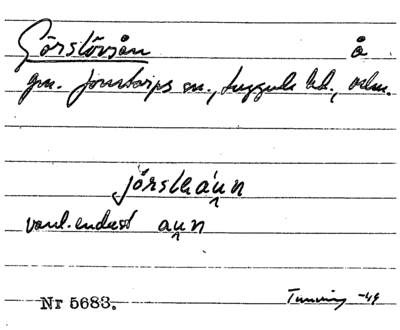 Görslövsån å
gm. Jonstorps sn., Luggude hd., Malm.
jörsleáu̯n
vanl. endast au̯n
Nr 5683. Tunving -49